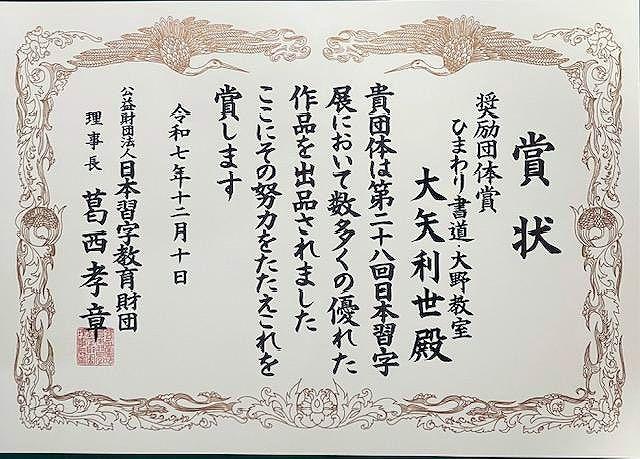 賞状
奨励団体賞
ひまわり書道・大野教室
大矢利世殿
貴団体は第二十八回日本習字
展において数多くの優れた
作品を出品されました
ここにその努力をたたえこれを
賞します
令和七年十二月十日
公益財団法人日本習字教育財団
理事長 葛西孝章